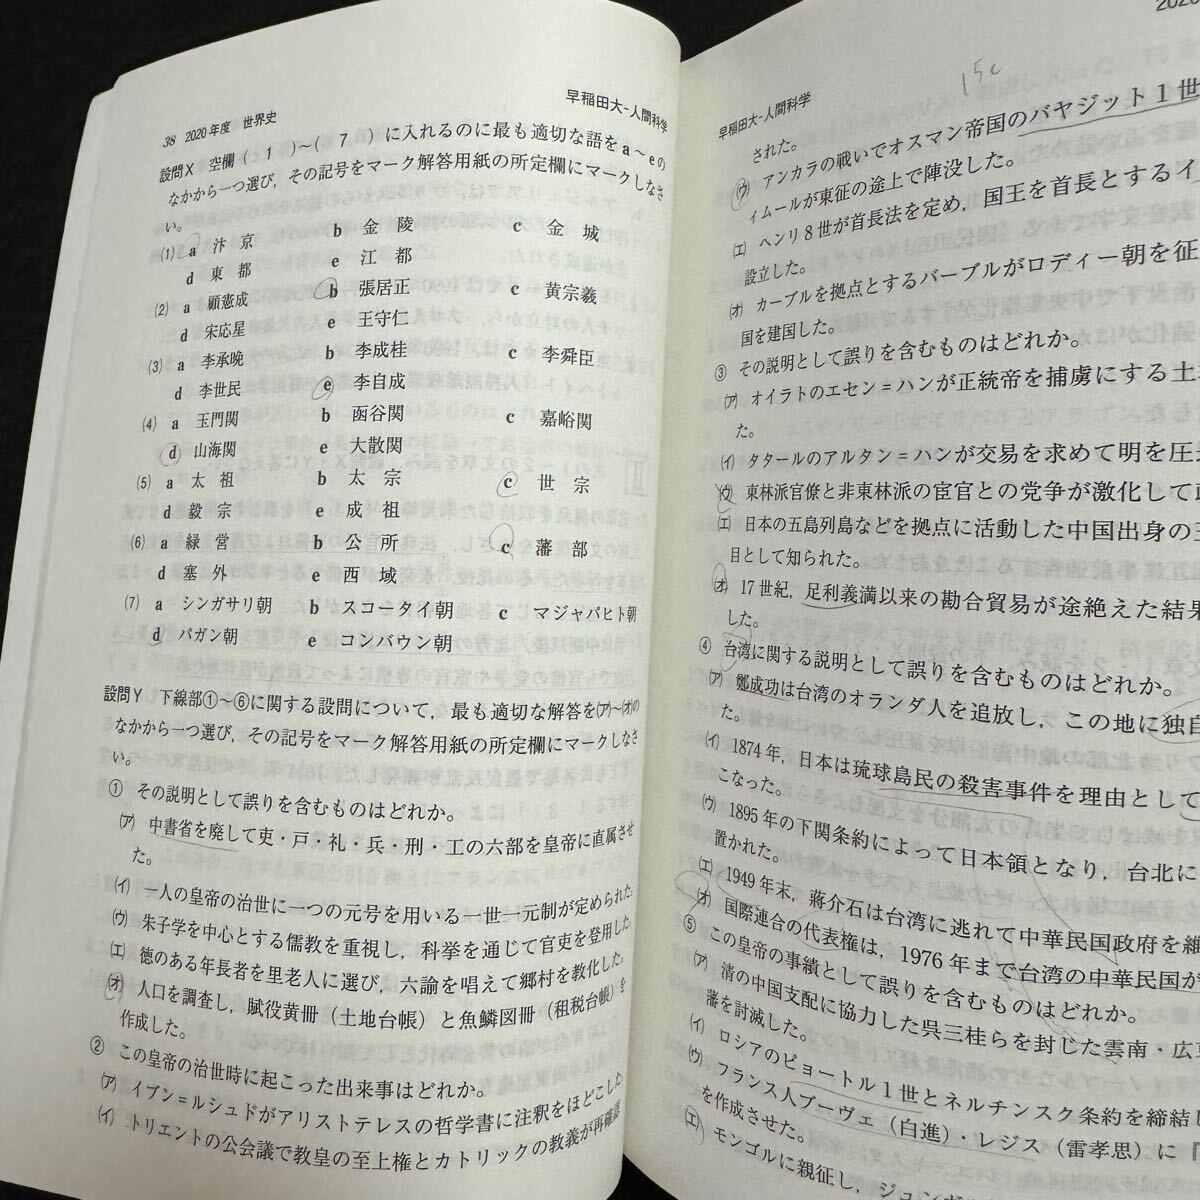 38 2020年度 世界史
早稲田大-人間科学
設問X 空欄( 1 )~( 7 )に入れるのに最も適切な語をa~eの
なかから一つ選び,その記号をマーク解答用紙の所定欄にマークしなさ
い。
(1) a 汴京 b 金陵 c 金城
d 東都 e 江都
(2) a 顧憲成 b 張居正 c 黄宗羲
d 宋応星 e 王守仁
(3) a 李承晩 b 李成桂 c 李舜臣
d 李世民 e 李自成
(4) a 玉門関 b 函谷関 c 嘉峪関
d 山海関 e 大散関
(5) a 太祖 b 太宗 c 世宗
d 毅宗 e 成祖
(6) a 緑営 b 公所 c 藩部
d 塞外 e 西域
(7) a シンガサリ朝 b スコータイ朝 c マジャパヒト朝
d パガン朝 e コンバウン朝
設問Y 下線部①~⑥に関する設問について,最も適切な解答を(ア)~(オ)の
なかから一つ選び,その記号をマーク解答用紙の所定欄にマークしなさ
い。
① その説明として誤りを含むものはどれか。
(ア) 中書省を廃して吏・戸・礼・兵・刑・工の六部を皇帝に直属させ
た。
(イ) 一人の皇帝の治世に一つの元号を用いる一世一元制が定められた。
(ウ) 朱子学を中心とする儒教を重視し,科挙を通じて官吏を登用した。
(エ) 徳のある年長者を里老人に選び,六諭を唱えて郷村を教化した。
(オ) 人口を調査し,賦役黄冊(土地台帳)と魚鱗図冊(租税台帳)を
作成した。
② この皇帝の治世時に起こった出来事はどれか。
(ア) イブン=ルシュドがアリストテレスの哲学書に注釈をほどこした。
(イ) トリエントの公会議で教皇の至上権とカトリックの教義が再確認
2020
早稲田大-人間科学
された。
(ウ) アンカラの戦いでオスマン帝国のバヤジット1世
ィムールが東征の途上で陣没した。
(エ) ヘンリ8世が首長法を定め,国王を首長とするイ
設立した。
(オ) カーブルを拠点とするバーブルがロディー朝を征
国を建国した。
③ その説明として誤りを含むものはどれか。
(ア) オイラトのエセン=ハンが正統帝を捕虜にする土
た。
(イ) タタールのアルタン=ハンが交易を求めて明を圧
(ウ) 東林派官僚と非東林派の宦官との党争が激化して政
(エ) 日本の五島列島などを拠点に活動した中国出身の王
目として知られた。
(オ) 17世紀,足利義満以来の勘合貿易が途絶えた結果
した。
④ 台湾に関する説明として誤りを含むものはどれか。
(ア) 鄭成功は台湾のオランダ人を追放し,この地に独自
た。
(イ) 1874年,日本は琉球島民の殺害事件を理由として
こなった。
(ウ) 1895年の下関条約によって日本領となり,台北に
置かれた。
(エ) 1949年末,蔣介石は台湾に逃れて中華民国政府を維
(オ) 国際連合の代表権は,1976年まで台湾の中華民国が
⑤ この皇帝の事績として誤りを含むものはどれか。
(ア) 清の中国支配に協力した呉三桂らを封じた雲南・広東
藩を討滅した。
(イ) ロシアのピョートル1世とネルチンスク条約を締結し
(ウ) フランス人ブーヴェ(白進)・レジス(雷孝思)に『
を作成させた。
(エ) モンゴルに親征し,ジュンガ